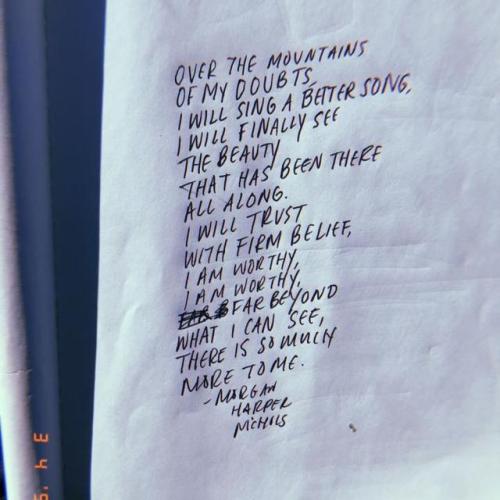 OVER THE MOUNTAINS
OF MY DOUBTS,
I WILL SING A BETTER SONG,
I WILL FINALLY SEE
THE BEAUTY
THAT HAS BEEN THERE
ALL ALONG.
I WILL TRUST
WITH FIRM BELIEF,
I AM WORTHY,
I AM WORTHY,
FAR BEYOND
WHAT I CAN SEE,
THERE IS SO MUCH
MORE TO ME.
-MORGAN
HARPER
NICHOLS